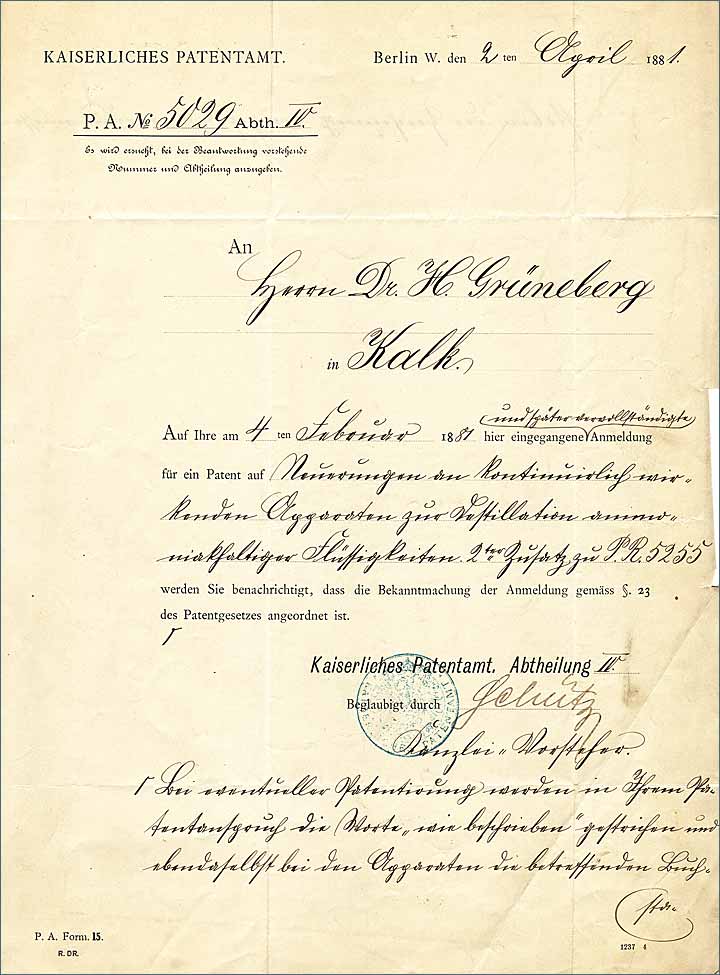 KAISERLICHES PATENTAMT.
Berlin W. den 2 ten April 1881.
P. A. № 5029 Abth. IV.
Es wird ersucht, bei der Beantwortung vorstehende
Nummer und Abtheilung anzugeben.
An
Herrn Dr. H. Grüneberg
in Kalk.
und später vervollständigte
Auf Ihre am 4 ten Februar 1881 hier eingegangene Anmeldung
für ein Patent auf Neuerungen an kontinuirlich wir-
kenden Apparaten zur Destillation ammo-
niakhaltiger Flüssigkeiten. 2ter Zusatz zu P. R. 5255
werden Sie benachrichtigt, dass die Bekanntmachung der Anmeldung gemäss §. 23
des Patentgesetzes angeordnet ist.
Kaiserliches Patentamt. Abtheilung IV
Beglaubigt durch Schütz
Kanzlei-Vorsteher.
Bei eventueller Patentirung werden in Ihrem Pa-
tentanspruch die Worte „wie beschrieben" gestrichen und
ebendaselbst bei den Apparaten die betreffenden Buch-
sta-
P. A. Form. 15.
R. DR.
1237 4